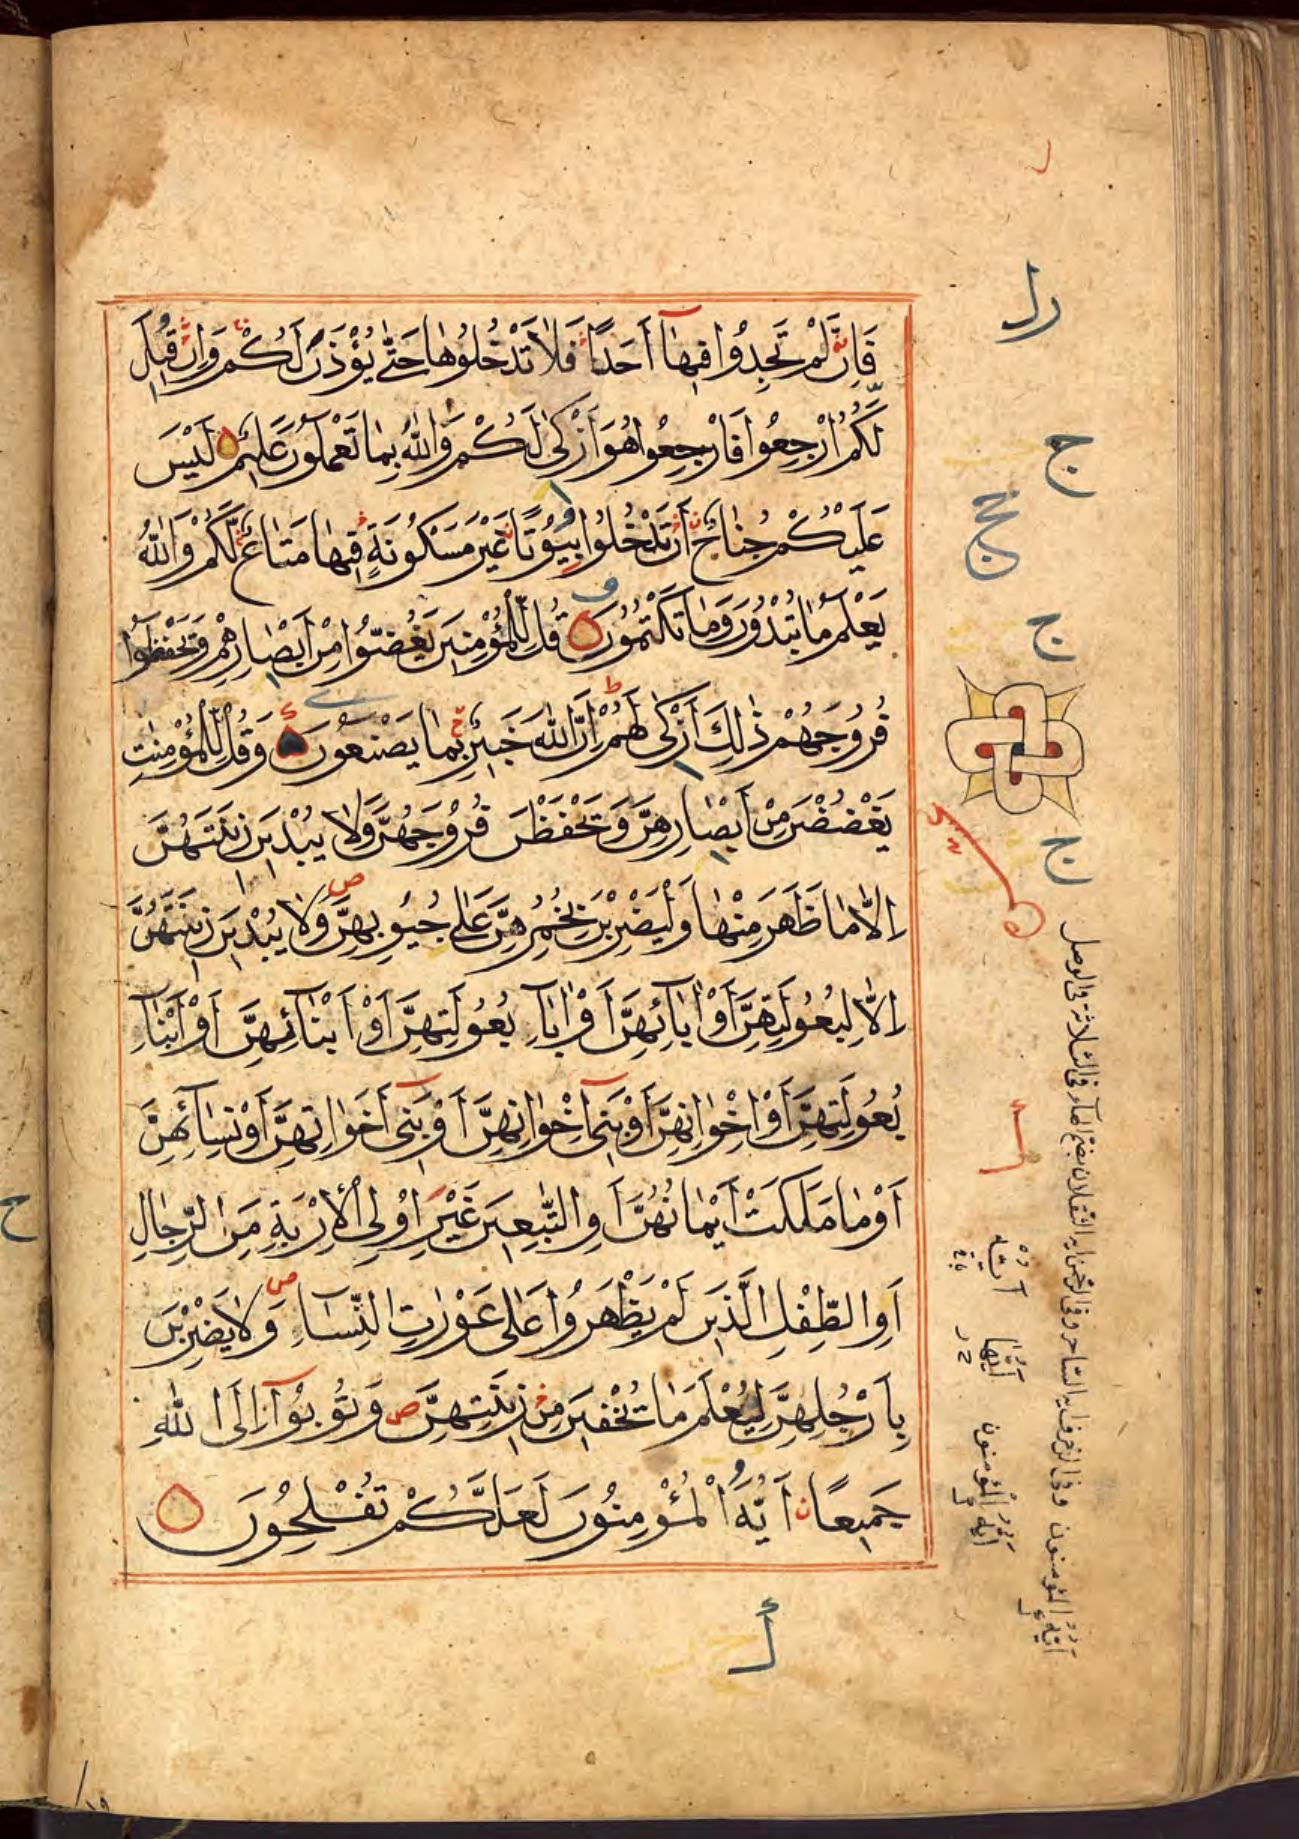 فَاِنْ لَمْ تَجِدُوا فِيهَا اَحَدًا فَلَا تَدْخُلُوهَا حَتّٰى يُؤْذَنَ لَكُمْ وَاِنْ قِيلَ
لَكُمُ ارْجِعُوا فَارْجِعُوا هُوَ اَزْكٰى لَكُمْ وَاللّٰهُ بِمَا تَعْمَلُونَ عَلِيمٌ لَيْسَ
عَلَيْكُمْ جُنَاحٌ اَنْ تَدْخُلُوا بُيُوتًا غَيْرَ مَسْكُونَةٍ فِيهَا مَتَاعٌ لَّكُمْ وَاللّٰهُ
يَعْلَمُ مَا تُبْدُونَ وَمَا تَكْتُمُونَ قُلْ لِّلْمُؤْمِنِينَ يَغُضُّوا مِنْ اَبْصَارِهِمْ وَيَحْفَظُوا
فُرُوجَهُمْ ذٰلِكَ اَزْكٰى لَهُمْ اِنَّ اللّٰهَ خَبِيرٌ بِمَا يَصْنَعُونَ وَقُلْ لِّلْمُؤْمِنٰتِ
يَغْضُضْنَ مِنْ اَبْصَارِهِنَّ وَيَحْفَظْنَ فُرُوجَهُنَّ وَلَا يُبْدِينَ زِينَتَهُنَّ
اِلَّا مَا ظَهَرَ مِنْهَا وَلْيَضْرِبْنَ بِخُمُرِهِنَّ عَلٰى جُيُوبِهِنَّ وَلَا يُبْدِينَ زِينَتَهُنَّ
اِلَّا لِبُعُولَتِهِنَّ اَوْ اٰبَآئِهِنَّ اَوْ اٰبَآءِ بُعُولَتِهِنَّ اَوْ اَبْنَآئِهِنَّ اَوْ اَبْنَآءِ
بُعُولَتِهِنَّ اَوْ اِخْوَانِهِنَّ اَوْ بَنِىٓ اِخْوَانِهِنَّ اَوْ بَنِىٓ اَخَوَاتِهِنَّ اَوْ نِسَآئِهِنَّ
اَوْ مَا مَلَكَتْ اَيْمَانُهُنَّ اَوِ التّٰبِعِينَ غَيْرِ اُولِى الْاِرْبَةِ مِنَ الرِّجَالِ
اَوِ الطِّفْلِ الَّذِينَ لَمْ يَظْهَرُوا عَلٰى عَوْرٰتِ النِّسَآءِ وَلَا يَضْرِبْنَ
بِاَرْجُلِهِنَّ لِيُعْلَمَ مَا يُخْفِينَ مِنْ زِينَتِهِنَّ وَتُوبُوٓا اِلَى اللّٰهِ
جَمِيعًا اَيُّهَ الْمُؤْمِنُونَ لَعَلَّكُمْ تُفْلِحُونَ
ج
ن
ن
ايه المؤمنون
ايه المؤمنون وفى الزخرف ايه الساحر وفى الرحمن ايه الثقلان بضم الهاء فى الثلاثة فى الوصل
ح